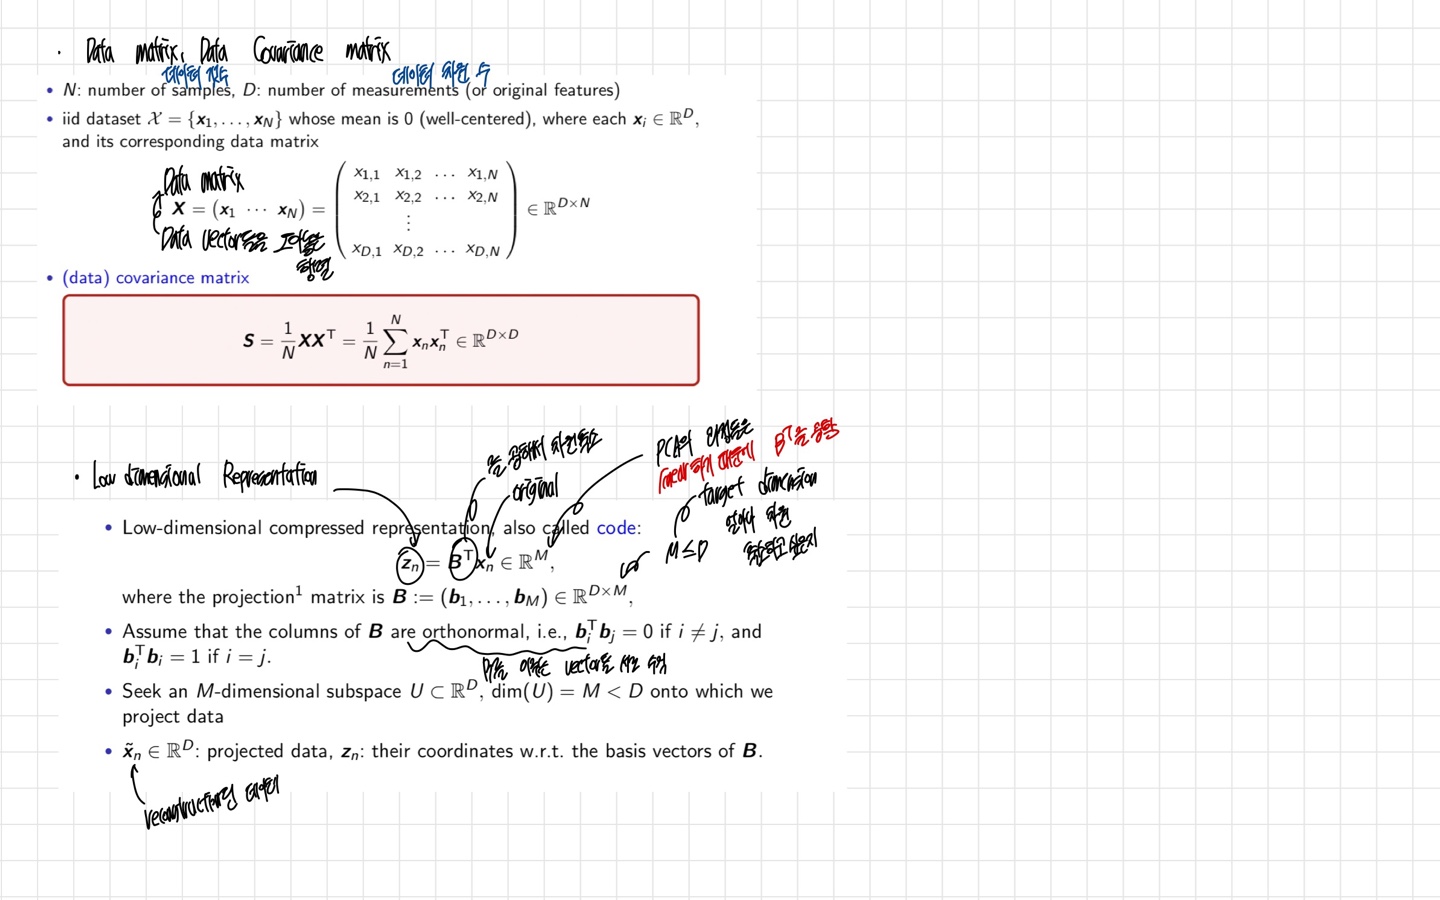 · Data matrix, Data Covariance matrix
데이터 갯수 데이터 차원 수
• N: number of samples, D: number of measurements (or original features)
• iid dataset 𝒳 = {x₁, . . . , x_N} whose mean is 0 (well-centered), where each x_i ∈ ℝ^D,
and its corresponding data matrix
Data matrix
X = (x₁ ⋯ x_N) = ( x_{1,1} x_{1,2} ⋯ x_{1,N}
x_{2,1} x_{2,2} ⋯ x_{2,N}
⋮
x_{D,1} x_{D,2} ⋯ x_{D,N} ) ∈ ℝ^{D×N}
Data vector들을 모아놓은
행렬
• (data) covariance matrix
S = 1/N XX^T = 1/N ∑_{n=1}^{N} x_n x_n^T ∈ ℝ^{D×D}
· Low dimensional Representation
을 곱해서 차원축소
original
PCA의 가정들은
linear하기 때문에 B^T을 곱함
target dimension
얼마나 차원
축소하고 싶은지
• Low-dimensional compressed representation, also called code:
z_n = B^T x_n ∈ ℝ^M,
M ≤ D
where the projection¹ matrix is B := (b₁, . . . , b_M) ∈ ℝ^{D×M},
• Assume that the columns of B are orthonormal, i.e., b_i^T b_j = 0 if i ≠ j, and
b_i^T b_i = 1 if i = j.
B를 이루는 vector들 서로 수직
• Seek an M-dimensional subspace U ⊂ ℝ^D, dim(U) = M < D onto which we
project data
• x̃_n ∈ ℝ^D: projected data, z_n: their coordinates w.r.t. the basis vectors of B.
데이터